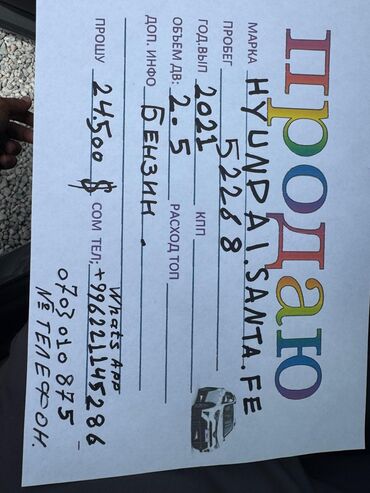 продаю
МАРКА HYUNDAI.SANTA.FE
ПРОБЕГ 52268
ГОД.ВЫП 2021 КПП
ОБЪЕМ ДВ: 2.5 РАСХОД ТОП
ДОП. ИНФО БЕНЗИН.
WhatsApp
ПРОШУ 24.500 $ СОМ ТЕЛ: +996221145286
0703010875
№ТЕЛЕФОН.